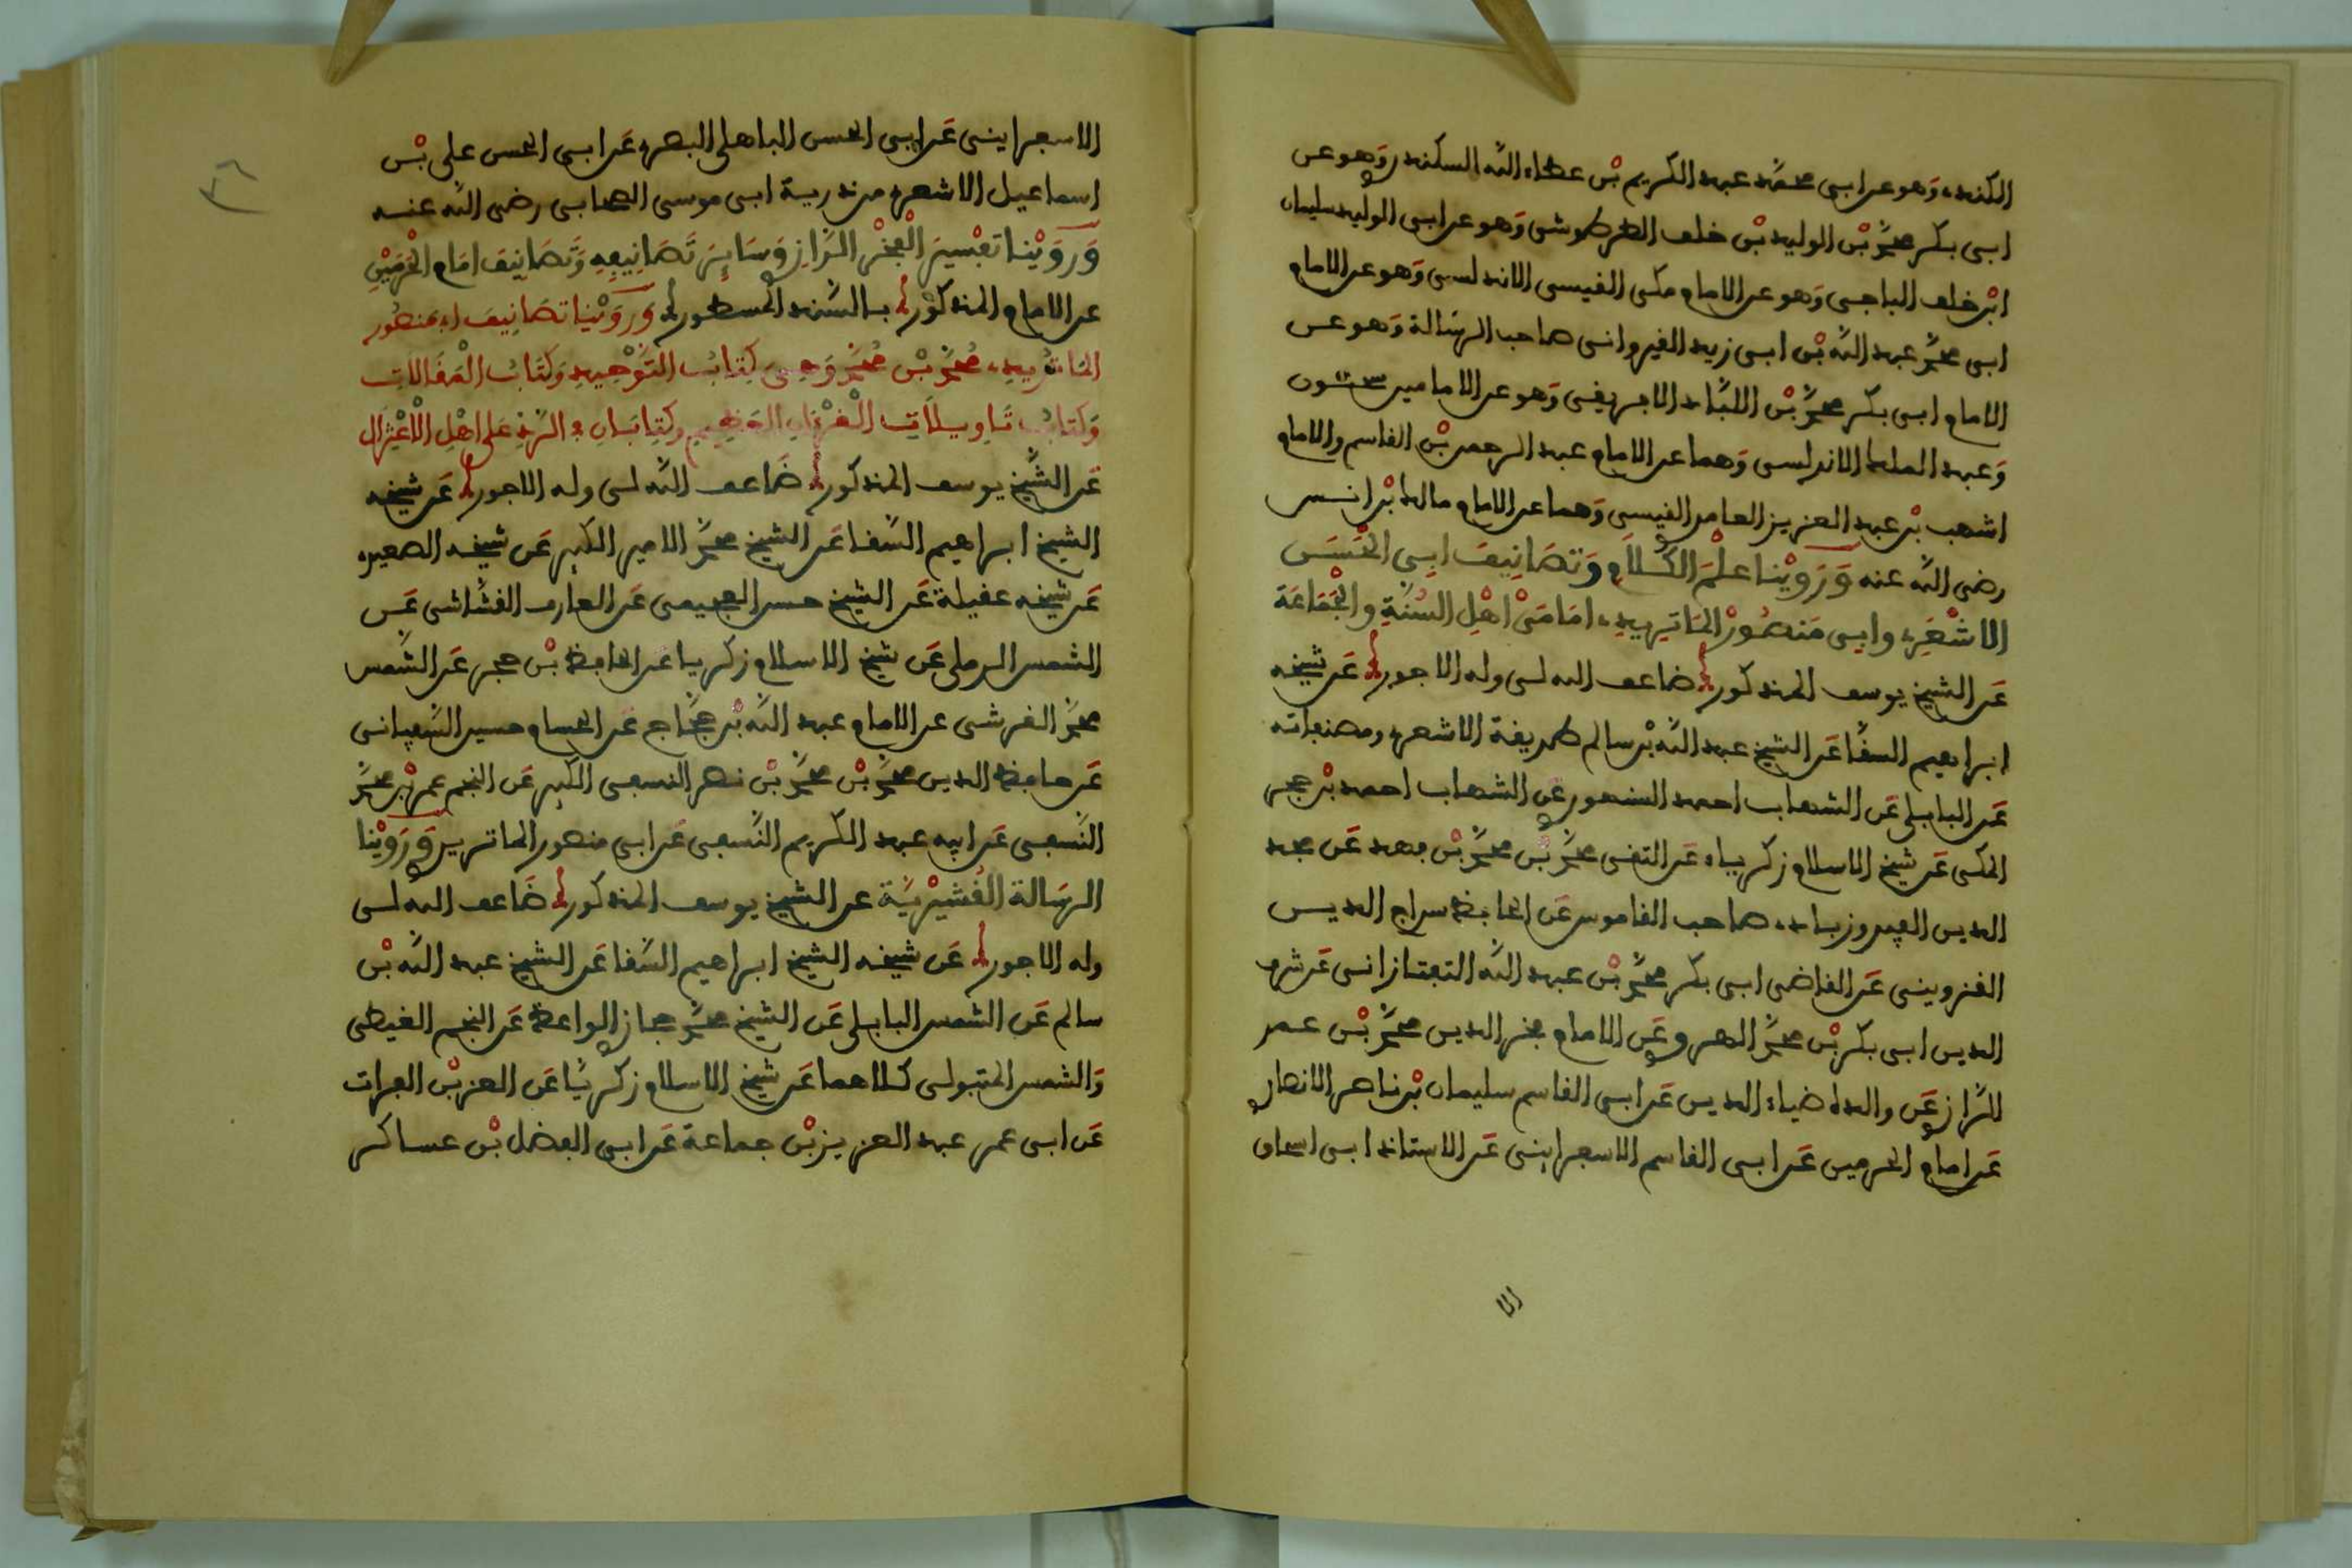 الكندى وَهو عن ابى محمَّد عبد الكريم بْن عطاء اللّه السكندرى وَهو عن
ابى بكر محمَّد بْن الوليد بْن خلف الطرطوشى وَهو عن ابى الوليد سليمان
ابْن خلف الباجى وَهو عن الامام مكى القيسى الاندلسى وَهو عن الامام
ابى محمَّد عبد اللّه بْن ابى زيد القيروانى صاحب الرسَالة وَهو عن
الامام ابى بكر محمَّد بْن اللبَّاد الافريقى وَهو عن الامامين سحنون
وَعبد الملك الاندلسى وَهما عن الامام عبد الرحمن بْن القاسم والامام
اشهب بْن عبد العزيز العامرى القيسى وَهما عن الامام مالك بْن انس
رضى اللّه عنه وَرَوَيْنا علْمَ الْكَلاَمِ وَتصَانِيفَ ابِى الْحَسَن
الاشْعَرِى وابِى مَنصُورْ الْمَاتِرِيدِى امَامَىْ اهْلِ السُّنَّةِ والْجَمَاعَة
عَن الشيخ يوسف المذكور ضاعف الله لى وله الاجور عَن شيخه
ابراهيم السقَّا عَن الشيخ عبد اللّه بْن سالم طريقة الاشعرى ومصنفاته
عَن البابلى عَن الشهاب احمد السنهورى عَن الشهاب احمد بْن حجر
المكى عَن شيخ الاسلام زكرياء عَن التقى محمَّد بْن محمَّد بْن فهد عَن مجد
الدين الفيروزبادى صاحب القاموس عَن الحافظ سراج الدين
القزوينى عَن القاضى ابى بكر محمَّد بْن عبد اللّه التفتازانى عَن شرف
الدين ابى بكر بْن محمَّد الهروى عَن الامام فخر الدين محمَّد بْن عمر
الرَّازى عَن والده ضياء الدين عَن ابى القاسم سليمان بْن ناصر الانصارى
عَن امام الحرمين عَن ابى القاسم الاسفراينى عَن الاستاذ ابى اسحاق
الا
٣٦
الاسفراينى عَن ابى الحسن الباهلى البصرى عَن ابى الحسن على بْن
اسماعيل الاشعرى من ذرية ابى موسى الصحابى رضى اللّه عنه
وَرَوَيْنا تفْسِيرَ الْفَخْر الرَّازِى وَسَايِرَ تَصَانِيفِهِ وَتَصَانِيفَ امَام الْحَرَمَيْنِ
عن الامام المذكور بالسَّند المسطور وَرَوَيْنَا تصَانِيفَ ابِى مَنصُور
المَاتُرِيدِى مُحمَّد بْن مُحَمَّد وَهِىَ كِتَابُ التَّوْحِيدِ وَكتَابُ الْمَقَالاَتِ
وَكتَابُ تَاوِيلاَتِ الْقرْءَانِ الْعَظِيمِ وكِتَابَانِ فِى الرَّدِّ عَلى اهْلِ الاعْتِزَال
عَن الشَّيخ يوسف المذكور ضَاعف اللّه لى وله الاجور عَن شيخه
الشيخ ابراهيم السَّقا عَن الشيخ محمَّد الامير الكبير عَن شيخه الصعيدى
عَن شيخه عقيلة عَن الشيخ حسن العجيمى عَن العارف القشَّاشى عَن
الشمس الرملى عَن شيخ الاسلام زكريا عَن الحافظ بْن حجر عَن الشَّمس
محمَّد القرشى عن الامام عبد اللّه بْن حجَّاج عَن الحسام حسين السَّغنانى
عَن حافظ الدين محمَّد بْن محمَّد بْن نصر النسفى الكبير عَن النجم عمر بْن محمَّد
النَّسفى عَن ابيه عبد الكريم النَّسفى عَن ابى منصور الماتريدى وَرَوَيْنا
الرسَالة الْقُشَيْرِيَّة عن الشيخ يوسف المذكور ضَاعف الله لى
وله الاجور عَن شيخه الشيخ ابراهيم السَّقا عَن الشيخ عبد اللّه بْن
سالم عَن الشمس البابلى عَن الشيخ محمَّد حجازى الواعظ عَن النجم الغيطى
وَالشمس المتبولى كلاهما عَن شيخ الاسلام زكريَّا عَن العز بْن الفرات
عَن ابى عمر عبد العزيز بْن جماعة عَن ابى الفضل بْن عساكر